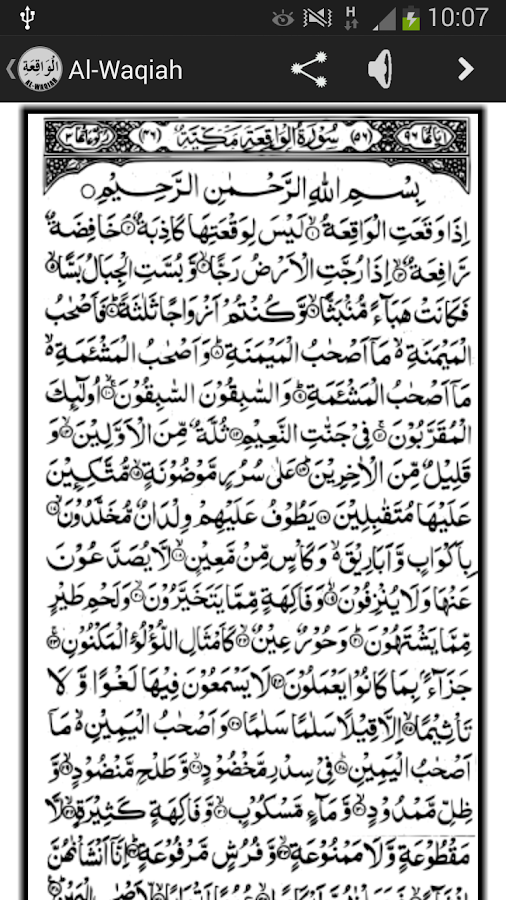 H
10:07
الْوَاقِعَةِ
AL-WAQIAH
Al-Waqiah
اٰیَاتُهَا ٩٦ (٥٦) سُوْرَةُ الْوَاقِعَةِ مَكِّیَّةٌ (٤٦) رُكُوْعَاتُهَا ٣
بِسْمِ اللهِ الرَّحْمٰنِ الرَّحِیْمِ
اِذَا وَقَعَتِ الْوَاقِعَةُ ۙ‏﴿١﴾ لَیْسَ لِوَقْعَتِهَا كَاذِبَةٌ ۘ‏﴿٢﴾ خَافِضَةٌ
رَّافِعَةٌ ۙ‏﴿٣﴾ اِذَا رُجَّتِ الْاَرْضُ رَجًّا ۙ‏﴿٤﴾ وَّ بُسَّتِ الْجِبَالُ بَسًّا ۙ‏﴿٥﴾
فَكَانَتْ هَبَآءً مُّنْۢبَثًّا ۙ‏﴿٦﴾ وَّ كُنْتُمْ اَزْوَاجًا ثَلٰثَةً ؕ‏﴿٧﴾ فَاَصْحٰبُ
الْمَیْمَنَةِ ۙ۬ مَاۤ اَصْحٰبُ الْمَیْمَنَةِ ؕ‏﴿٨﴾ وَ اَصْحٰبُ الْمَشْـَٔمَةِ ۙ۬
مَاۤ اَصْحٰبُ الْمَشْـَٔمَةِ ؕ‏﴿٩﴾ وَ السّٰبِقُوْنَ السّٰبِقُوْنَ ۚۙ‏﴿١٠﴾ اُولٰٓئِكَ
الْمُقَرَّبُوْنَ ۚ‏﴿١١﴾ فِیْ جَنّٰتِ النَّعِیْمِ ‏﴿١٢﴾ ثُلَّةٌ مِّنَ الْاَوَّلِیْنَ ۙ‏﴿١٣﴾ وَ
قَلِیْلٌ مِّنَ الْاٰخِرِیْنَ ؕ‏﴿١٤﴾ عَلٰی سُرُرٍ مَّوْضُوْنَةٍ ۙ‏﴿١٥﴾ مُّتَّكِـِٕیْنَ
عَلَیْهَا مُتَقٰبِلِیْنَ ‏﴿١٦﴾ یَطُوْفُ عَلَیْهِمْ وِلْدَانٌ مُّخَلَّدُوْنَ ۙ‏﴿١٧﴾
بِاَكْوَابٍ وَّ اَبَارِیْقَ ۙ۬ وَ كَاْسٍ مِّنْ مَّعِیْنٍ ۙ‏﴿١٨﴾ لَّا یُصَدَّعُوْنَ
عَنْهَا وَ لَا یُنْزِفُوْنَ ۙ‏﴿١٩﴾ وَ فَاكِهَةٍ مِّمَّا یَتَخَیَّرُوْنَ ۙ‏﴿٢٠﴾ وَ لَحْمِ طَیْرٍ
مِّمَّا یَشْتَهُوْنَ ؕ‏﴿٢١﴾ وَ حُوْرٌ عِیْنٌ ۙ‏﴿٢٢﴾ كَاَمْثَالِ اللُّؤْلُؤِ الْمَكْنُوْنِ ۚ‏﴿٢٣﴾
جَزَآءًۢ بِمَا كَانُوْا یَعْمَلُوْنَ ‏﴿٢٤﴾ لَا یَسْمَعُوْنَ فِیْهَا لَغْوًا وَّ لَا
تَاْثِیْمًا ۙ‏﴿٢٥﴾ اِلَّا قِیْلًا سَلٰمًا سَلٰمًا ‏﴿٢٦﴾ وَ اَصْحٰبُ الْیَمِیْنِ ۙ۬ مَاۤ
اَصْحٰبُ الْیَمِیْنِ ؕ‏﴿٢٧﴾ فِیْ سِدْرٍ مَّخْضُوْدٍ ۙ‏﴿٢٨﴾ وَّ طَلْحٍ مَّنْضُوْدٍ ۙ‏﴿٢٩﴾ وَّ
ظِلٍّ مَّمْدُوْدٍ ۙ‏﴿٣٠﴾ وَّ مَآءٍ مَّسْكُوْبٍ ۙ‏﴿٣١﴾ وَّ فَاكِهَةٍ كَثِیْرَةٍ ۙ‏﴿٣٢﴾ لَّا
مَقْطُوْعَةٍ وَّ لَا مَمْنُوْعَةٍ ۙ‏﴿٣٣﴾ وَّ فُرُشٍ مَّرْفُوْعَةٍ ؕ‏﴿٣٤﴾ اِنَّاۤ اَنْشَاْنٰهُنَّ